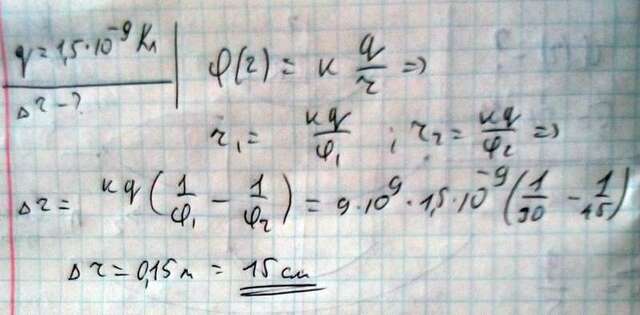 q = 1,5·10⁻⁹ Кл
Δr - ?
φ(r) = к q/r =>
r₁ = кq/φ₁ ; r₂ = кq/φ₂ =>
Δr = кq(1/φ₁ − 1/φ₂) = 9·10⁹·1,5·10⁻⁹(1/30 − 1/45)
Δr = 0,15 м = 15 см